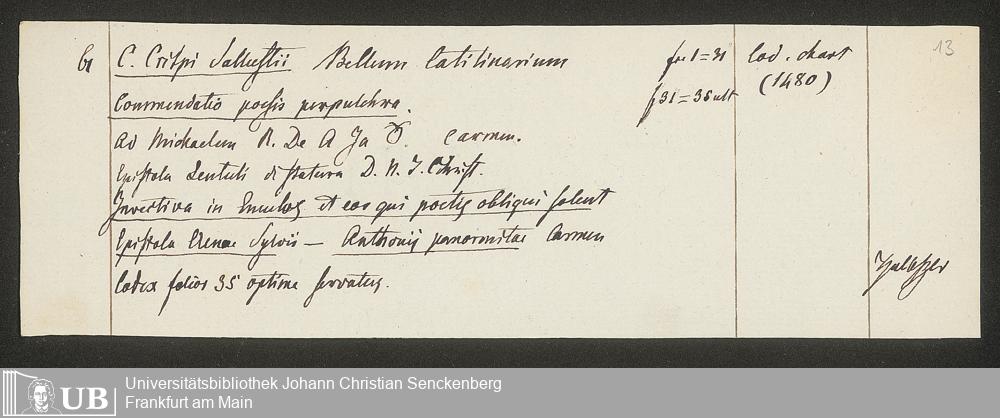 61 C. Crispi Sallustii Bellum Catilinarium fol 1=31 Cod. chart 13
(1480)
Commendatio poesis perpulchra. f 31=35 ult
Ad Michaelem N. De A Ja carmen.
Epistola Lentuli di statura D. N. J. Christ.
Invectiva in Emulos et eos qui poetis obliqui solent
Epistola Eneae Sylvii — Anthonij panormitae Carmen
Codex folior 35 optime servatus.
UB
Universitätsbibliothek Johann Christian Senckenberg
Frankfurt am Main